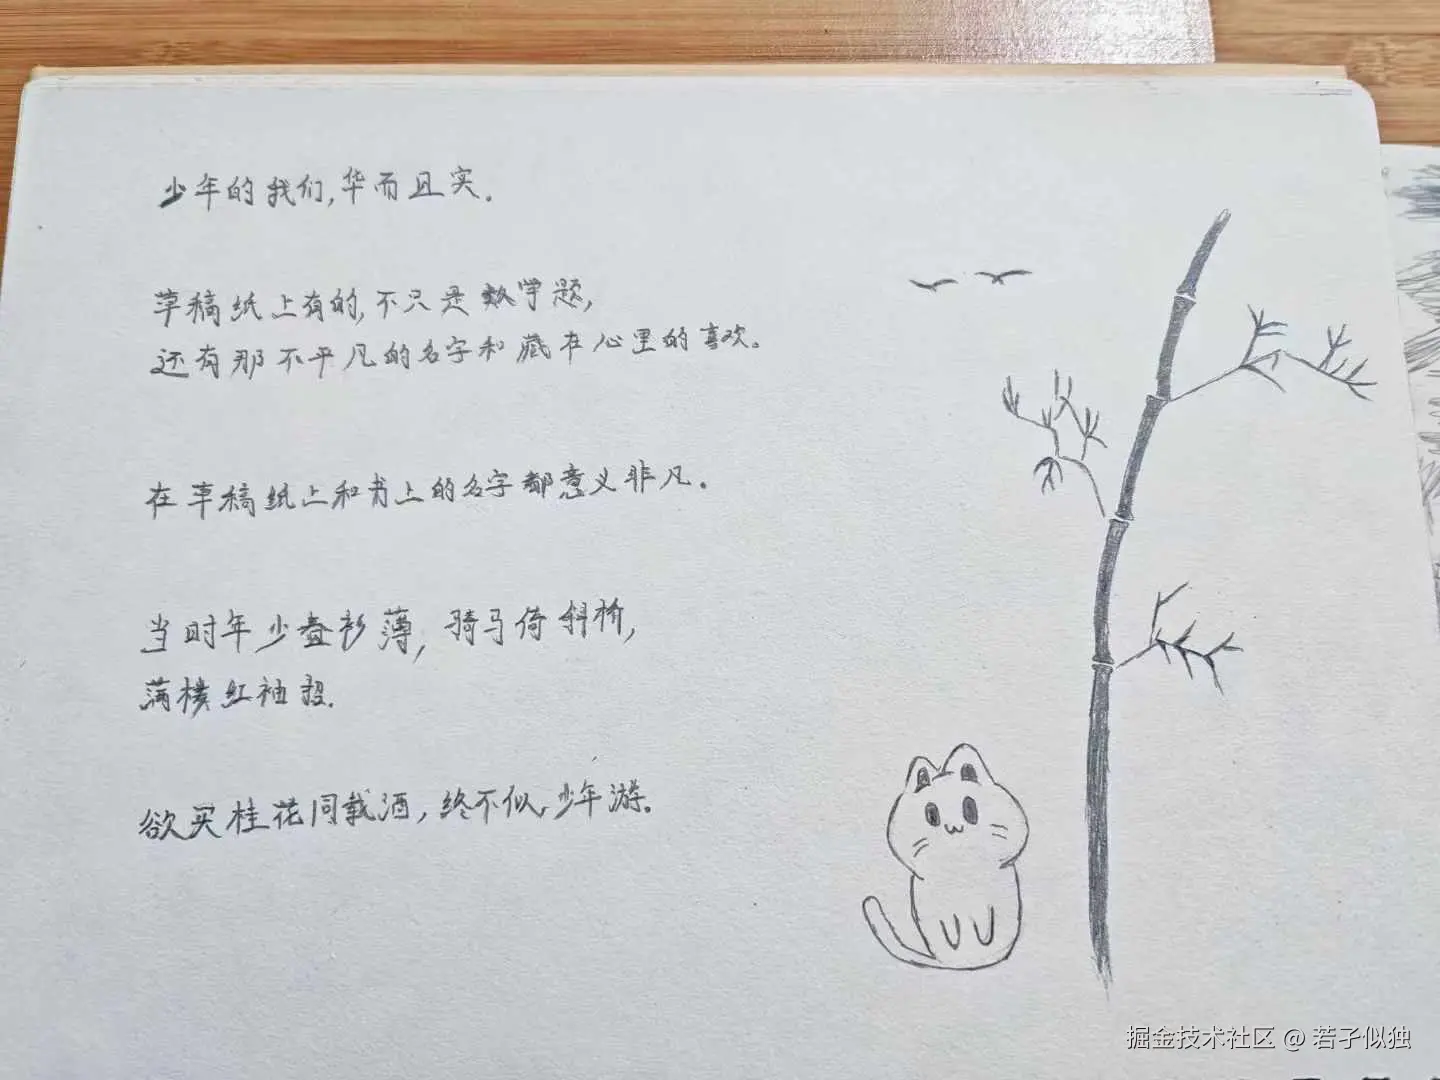 少年的我们,华而且实.
草稿纸上有的,不只是数学题,
还有那不平凡的名字和藏在心里的喜欢。
在草稿纸上和书上的名字都意义非凡。
当时年少春衫薄,骑马倚斜桥,
满楼红袖招.
欲买桂花同载酒,终不似,少年游。
掘金技术社区 @ 若子似独